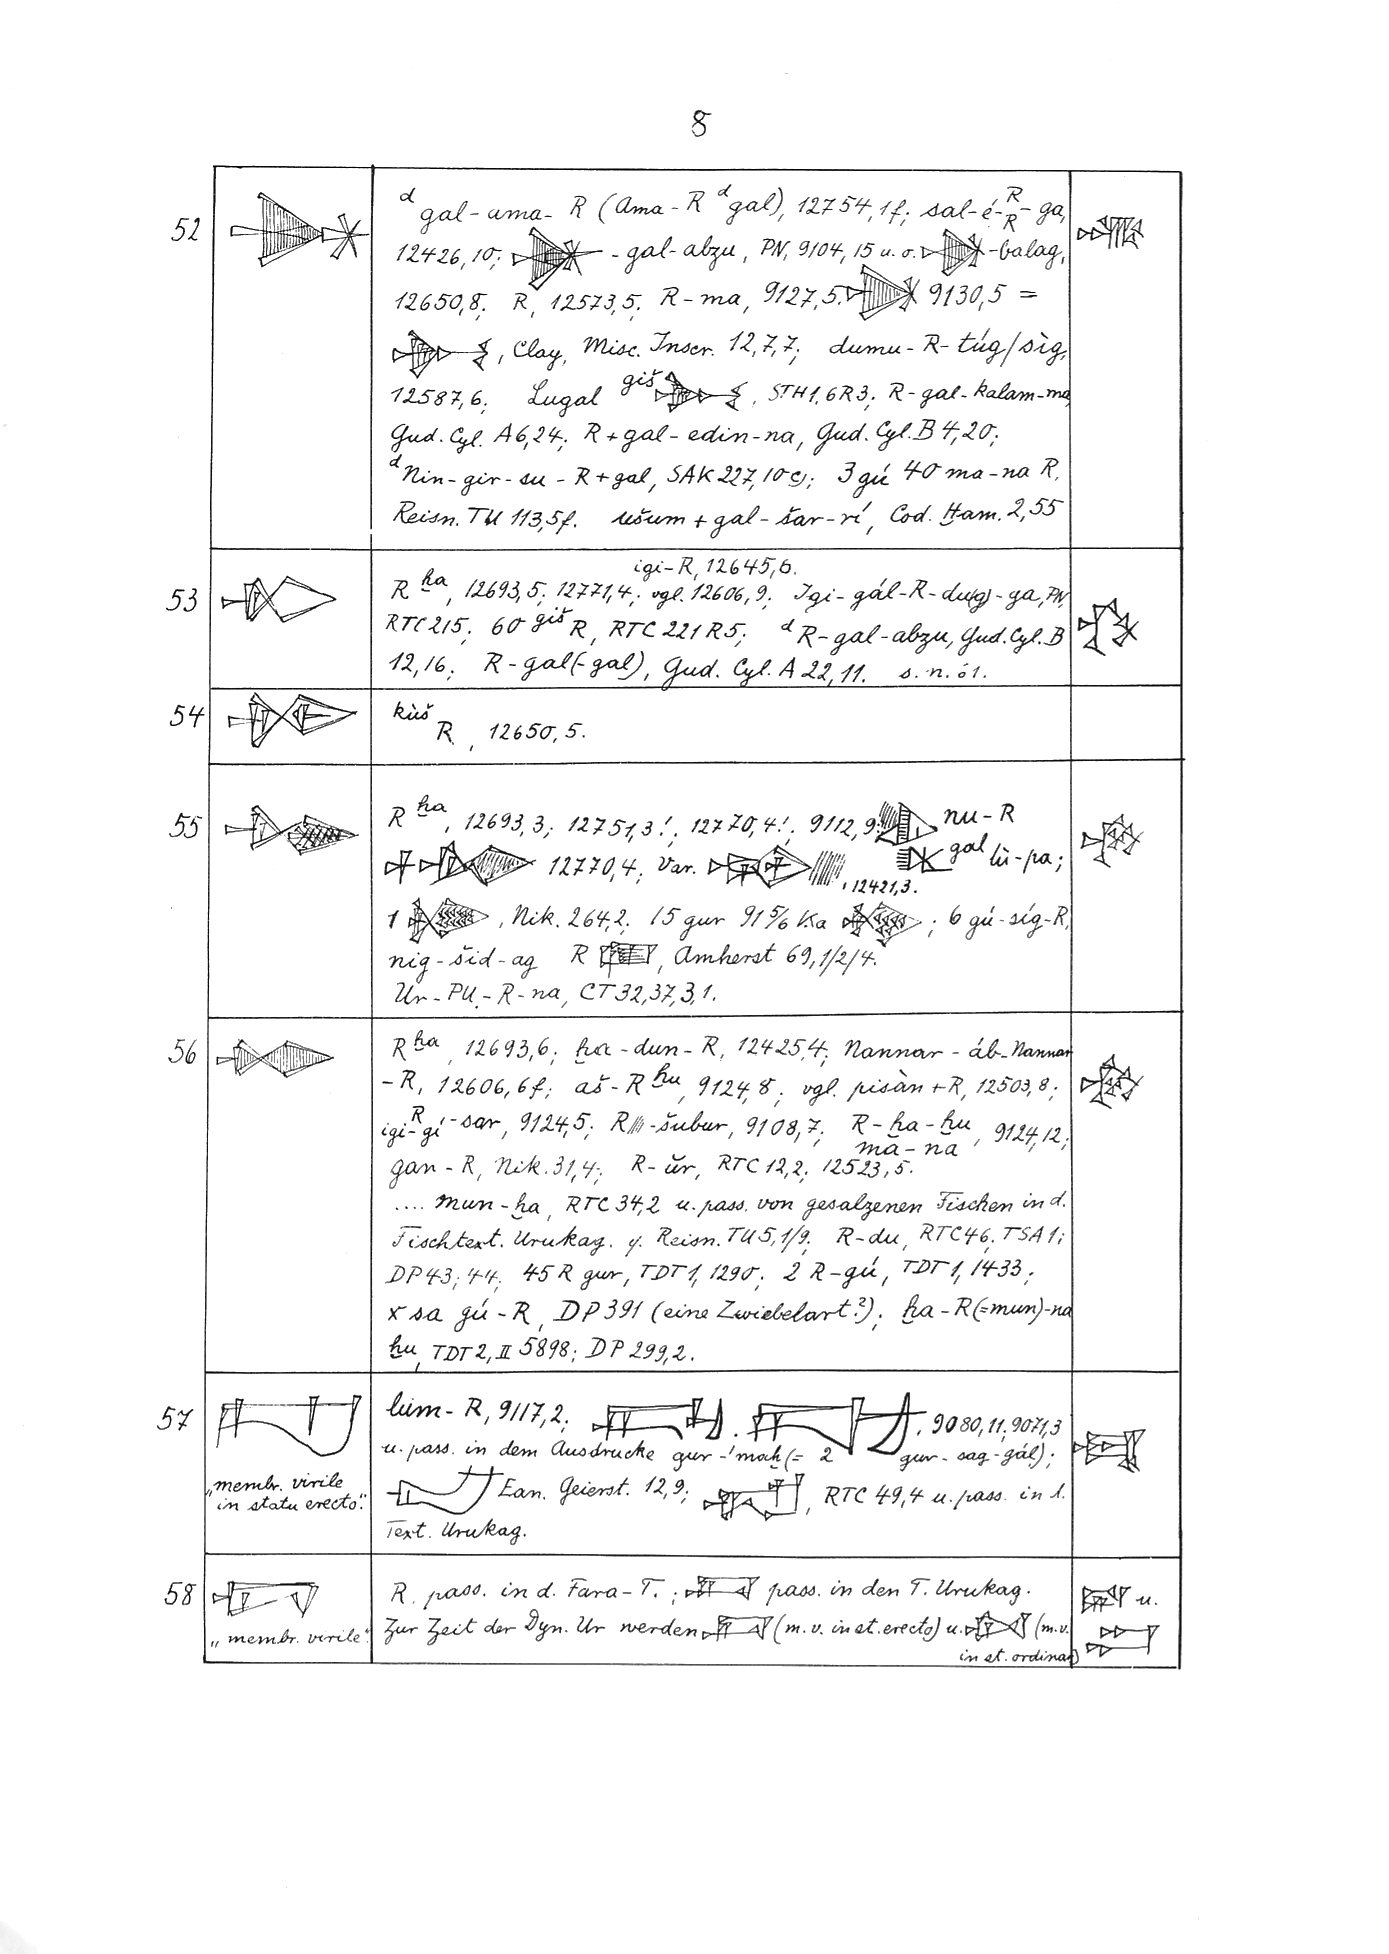 8
52
ᵈgal-ama-R (Ama-R ᵈgal), 12754,1f; sal-é-R/R-ga,
12426,10; -gal-abzu, PN, 9104,15 u. o. -balag,
12650,8; R, 12573,5; R-ma, 9127,5. 9130,5 =
, Clay, Misc. Inscr. 12,7,7; dumu-R-túg/sìg,
12587,6; Lugal ᵍⁱˢ̌ , STH1,6R3; R-gal-kalam-ma,
Gud. Cyl. A6,24; R+gal-edin-na, Gud. Cyl. B 4,20;
ᵈNin-gir-su-R+gal, SAK 227,10c); 3 gú 40 ma-na R,
Reisn. TU 113,5f. ušum+gal-šar-rí, Cod. Ḫam. 2,55
53
igi-R, 12645,6.
R ḫa, 12693,5; 12771,4; vgl. 12606,9; Igi-gál-R-du(g)-ga, PN,
RTC 215; 60 ᵍⁱˢ̌R, RTC 221 R5; ᵈR-gal-abzu, Gud. Cyl. B
12,16; R-gal(-gal), Gud. Cyl. A 22,11. s. n. 61.
54
kùš R, 12650,5.
55
R ḫa, 12693,3; 12751,3!; 12770,4!; 9112,9; nu-R
12770,4; Var. gal lù-pa;
, 12421,3.
1 , Nik. 264,2; 15 gur 91 5/6 Ka ; 6 gú-síg-R,
nig-šid-ag R , Amherst 69,1/2/4.
Ur-PU-R-na, CT 32,37,3,1.
56
R ḫa, 12693,6; ḫa-dun-R, 12425,4; Nannar-áb-Nannar
-R, 12606,6f; aš-R ḫu, 9124,8; vgl. pisàn+R, 12503,8;
igi-R-gí-sar, 9124,5; R -šubur, 9108,7; R-ḫa-ḫu, 9124,12;
má-na
gan-R, Nik. 31,4; R-ùr, RTC 12,2; 12523,5.
.... mun-ḫa, RTC 34,2 u. pass. von gesalzenen Fischen in d.
Fischtext. Urukag. y. Reisn. TU 5,1/9; R-du, RTC 46; TSA 1;
DP 43; 44; 45 R gur, TDT 1, 1290; 2 R-gú, TDT 1, 1433;
x sa gú-R, DP 391 (eine Zwiebelart?); ḫa-R(=mun)-na
ḫu, TDT 2, II 5898; DP 299,2.
57
lùm-R, 9117,2; . . 9080,11; 9071,3
u. pass. in dem Ausdrucke gur-maḫ (= 2 gur-sag-gál);
„membr. virile
in statu erecto“.
Ean. Geierst. 12,9; , RTC 49,4 u. pass. in l.
Text. Urukag.
58
R. pass. in d. Fara-T.; pass. in den T. Urukag.
u.
Zur Zeit der Dyn. Ur werden (m. v. in st. erecto) u. (m. v.
„membr. virile“.
in st. ordinar)